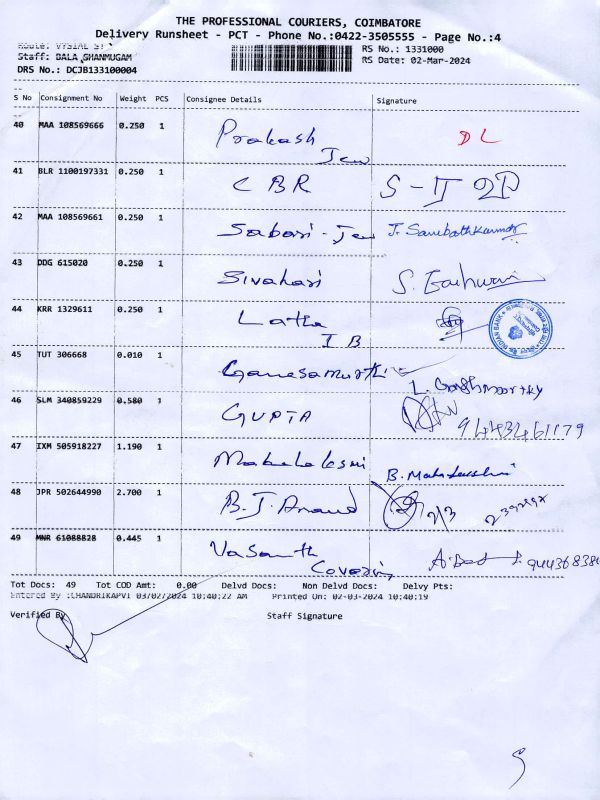 THE PROFESSIONAL COURIERS, COIMBATORE
Delivery Runsheet - PCT - Phone No.:0422-3505555 - Page No.:4
Route: VYSIAL ST
RS No.: 1331000
Staff: BALA GHANMUGAM
RS Date: 02-Mar-2024
DRS No.: DCJB133100004
S No Consignment No Weight PCS Consignee Details Signature
40 MAA 108569666 0.250 1 Prakash Jew DL
41 BLR 1100197331 0.250 1 CBR
42 MAA 108569661 0.250 1 Sabari - Jew J. Sambathkumar
43 DDG 615020 0.250 1 Sivahari
44 KRR 1329611 0.250 1 Latha IB
INDIAN BANK
45 TUT 306668 0.010 1 Ganesamurthi
46 SLM 340859229 0.580 1 GUPTA 9443461179
47 IXM 505918227 1.190 1 Mahalakshmi B. Mahalakshmi
48 JPR 502644990 2.700 1 B.J. Anand 2/3
49 MNR 61088828 0.445 1 Vasanth
Tot Docs: 49 Tot COD Amt: 0.00 Delvd Docs: Non Delvd Docs: Delvy Pts:
Entered By :CHANDRIKAPVI 03/02/2024 10:40:22 AM Printed On: 02-03-2024 10:40:19
Verified By Staff Signature